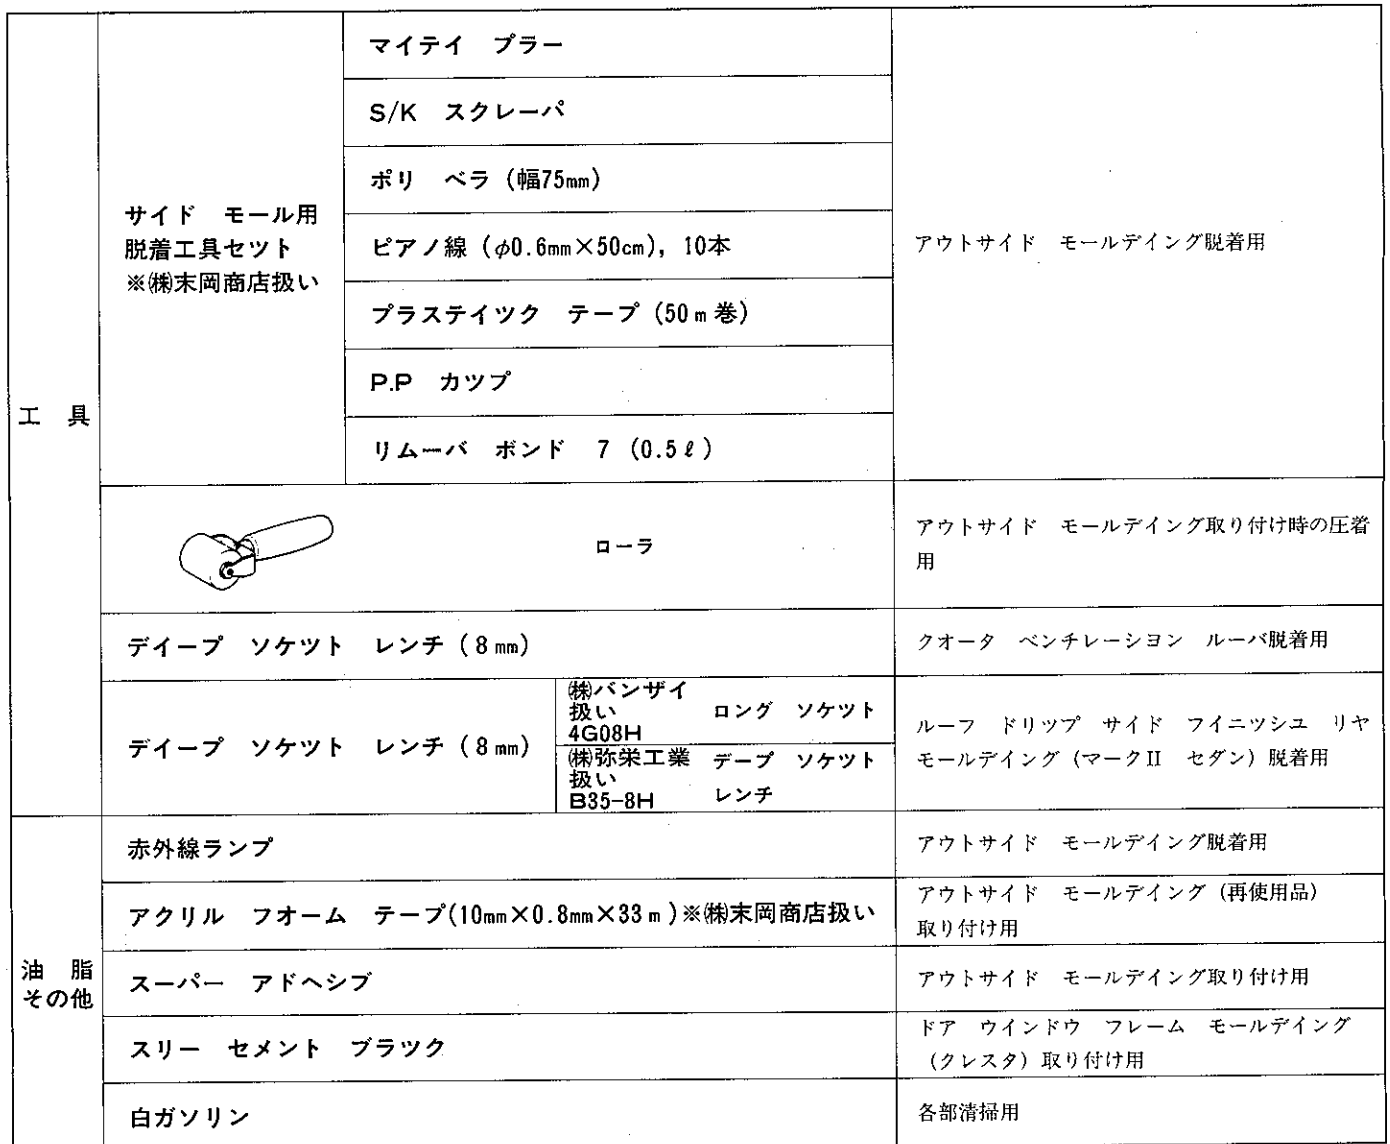 工 具
サイド モール用
脱着工具セツト
※㈱末岡商店扱い
マイテイ プラー
S/K スクレーパ
ポリ ベラ (幅75mm)
ピアノ線 (φ0.6mm×50cm), 10本
プラステイツク テープ (50m巻)
P.P カツプ
リムーバ ボンド 7 (0.5ℓ)
アウトサイド モールデイング脱着用
ローラ
アウトサイド モールデイング取り付け時の圧着
用
デイープ ソケツト レンチ (8mm)
クオータ ベンチレーシヨン ルーバ脱着用
デイープ ソケツト レンチ (8mm)
㈱バンザイ
扱い
4G08H
ロング ソケツト
㈱弥栄工業
扱い
B35-8H
デープ ソケツト
レンチ
ルーフ ドリツプ サイド フイニツシユ リヤ
モールデイング (マークII セダン) 脱着用
油 脂
その他
赤外線ランプ
アウトサイド モールデイング脱着用
アクリル フオーム テープ(10mm×0.8mm×33m)※㈱末岡商店扱い
アウトサイド モールデイング (再使用品)
取り付け用
スーパー アドヘシブ
アウトサイド モールデイング取り付け用
スリー セメント ブラツク
ドア ウインドウ フレーム モールデイング
(クレスタ) 取り付け用
白ガソリン
各部清掃用